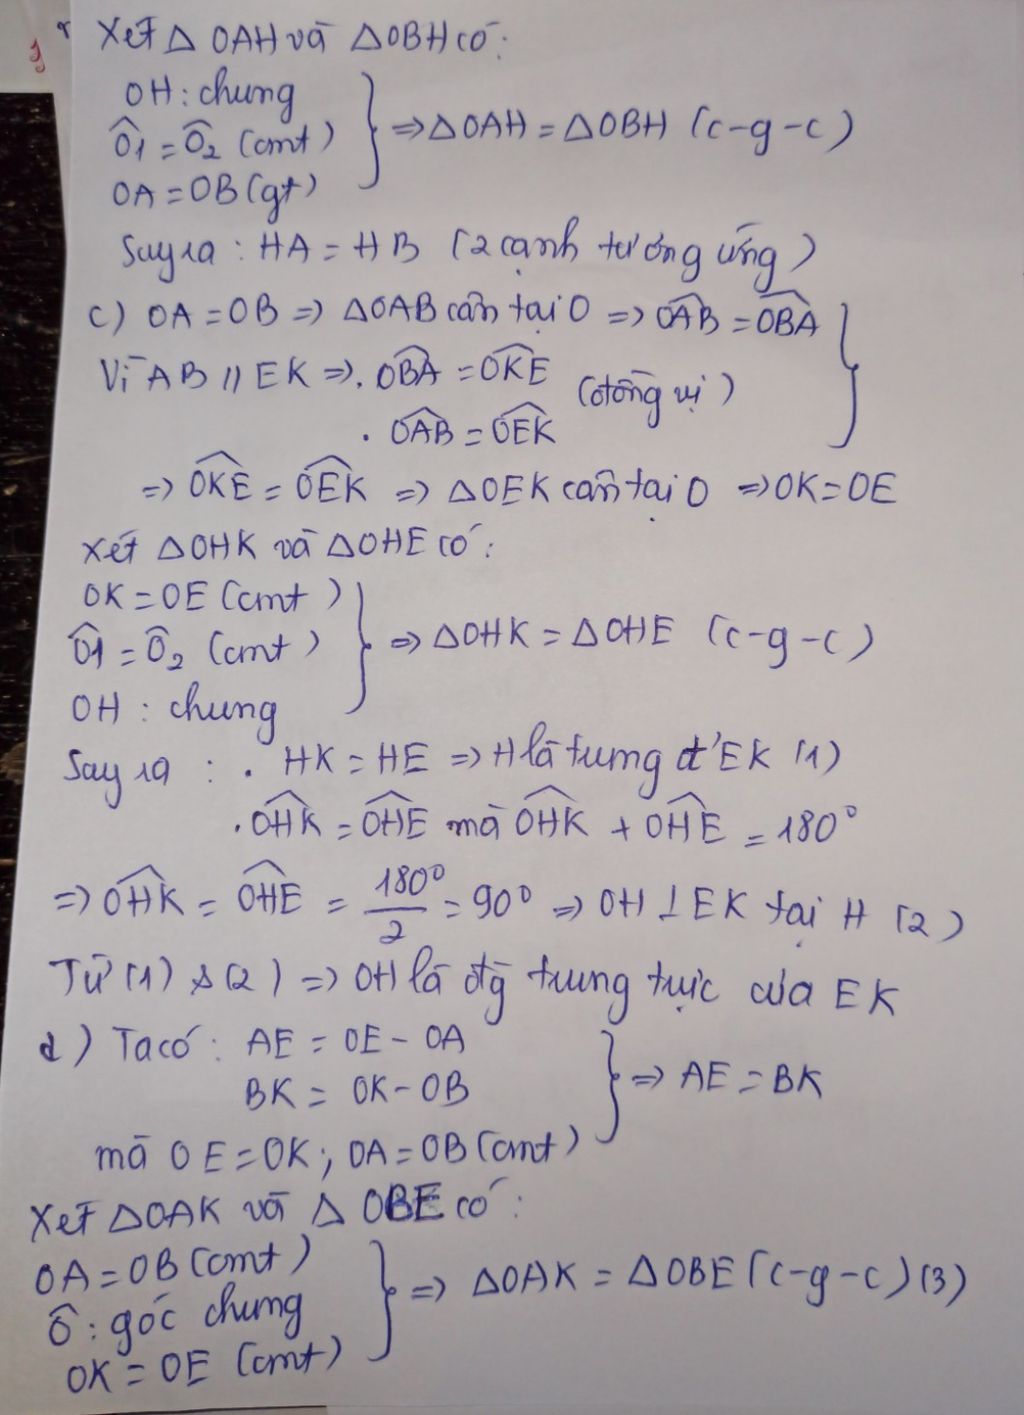 Xét △ OAH và △OBH có:
OH: chung
Ô1 = Ô2 (cmt) } ⇒ △OAH = △OBH (c-g-c)
OA = OB (gt)
Suy ra : HA = HB (2 cạnh tương ứng)
c) OA = OB ⇒ △OAB cân tại O ⇒ \widehat{OAB} = \widehat{OBA}
Vì AB // EK ⇒ . \widehat{OBA} = \widehat{OKE} (đồng vị) }
. \widehat{OAB} = \widehat{OEK}
⇒ \widehat{OKE} = \widehat{OEK} ⇒ △OEK cân tại O ⇒ OK = OE
Xét △OHK và △OHE có:
OK = OE (cmt)
Ô1 = Ô2 (cmt) } ⇒ △OHK = △OHE (c-g-c)
OH : chung
Suy ra : . HK = HE ⇒ H là trung đ' EK (1)
. \widehat{OHK} = \widehat{OHE} mà \widehat{OHK} + \widehat{OHE} = 180°
⇒ \widehat{OHK} = \widehat{OHE} = 180°/2 = 90° ⇒ OH ⊥ EK tại H (2)
Từ (1) & (2) ⇒ OH là đg̀ trung trực của EK
d) Ta có : AE = OE - OA
BK = OK - OB } ⇒ AE = BK
mà OE = OK ; OA = OB (cmt)
Xét △OAK và △ OBE có :
OA = OB (cmt)
Ô : góc chung } ⇒ △OAK = △OBE (c-g-c) (3)
OK = OE (cmt)